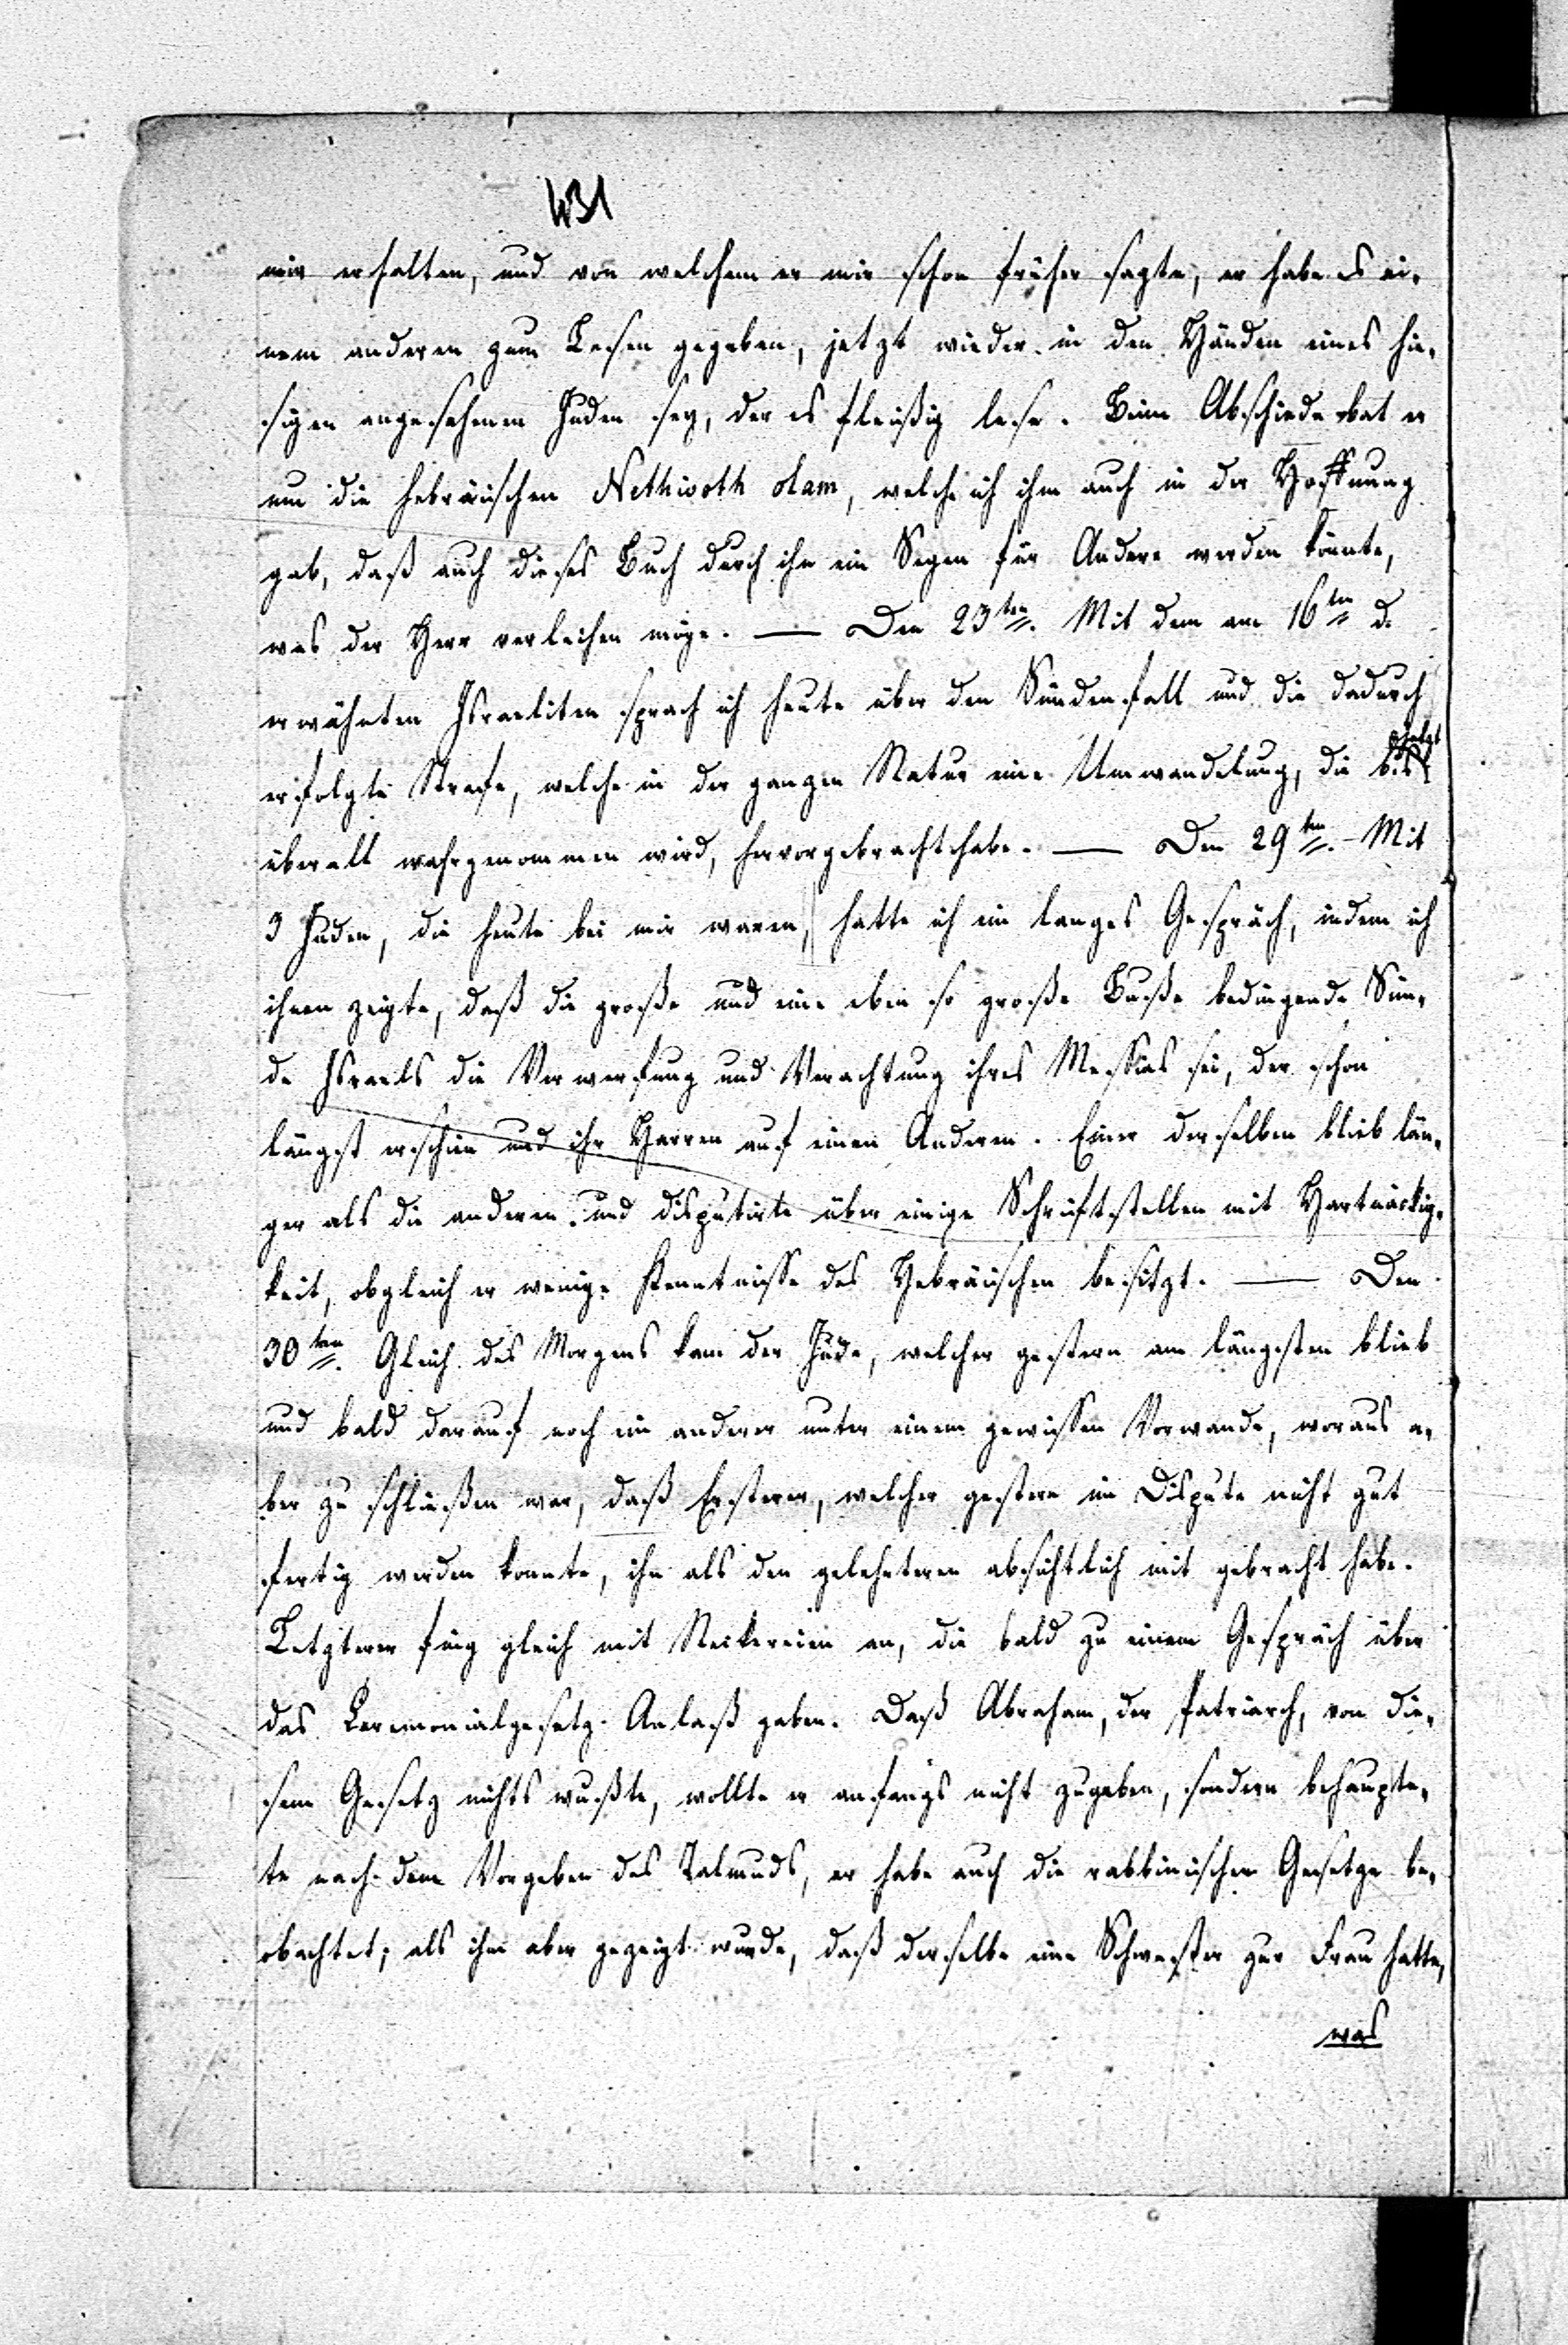 431
mir erhalten, und von welchem er mir schon früher sagte, er habe es ei-
nem anderen zum Lesen gegeben, jetzt wieder in den Händen eines hie-
sigen angesehenen Juden sey, der es fleißig lese. Beim Abschiede bat er
um die hebräischen Nethivoth olam, welche ich ihm auch in der Hoffnung
gab, daß auch dieses Buch durch ihn ein Segen für Andere werden könnte,
was der Herr verleihen möge. — Den 23ten. Mit dem am 16ten d.
erwähnten Israeliten sprach ich heute über den Sündenfall und die dadurch
erfolgte Strafe, welche in der ganzen Natur eine Umwandelung, die bis jetzt
überall wahrgenommen wird, hervorgebracht habe. — Den 29ten. Mit
3 Juden, die heute bei mir waren, hatte ich ein langes Gespräch, indem ich
ihnen zeigte, daß die große und eine eben so große Buße bedingende Sün-
de Israels die Verwerfung und Verachtung ihres Messias sei, der schon
längst erschien und ihr Harren auf einen Anderen. Einer derselben blieb län-
ger als die anderen und disputirte über einige Schriftstellen mit Hartnäckig-
keit, obgleich er wenige Kenntnisse des Hebräischen besitzt. — Den
30ten. Gleich des Morgens kam der Jude, welcher gestern am längsten blieb
und bald darauf noch ein anderer unter einem gewissen Vorwande, woraus a-
ber zu schließen war, daß Ersterer, welcher gestern im Dispute nicht gut
fertig werden konnte, ihn als den gelehrteren absichtlich mit gebracht habe.
Letzterer fing gleich mit Neckereien an, die bald zu einem Gespräch über
das Ceremonialgesetz Anlaß gaben. Daß Abraham, der Patriarch, von die-
sem Gesetz nichts wußte, wollte er anfangs nicht zugeben, sondern behaupte-
te nach dem Vorgeben des Talmuds, er habe auch die rabbinischen Gesetze be-
obachtet; als ihm aber gezeigt wurde, daß derselbe eine Schwester zur Frau hatte,
was